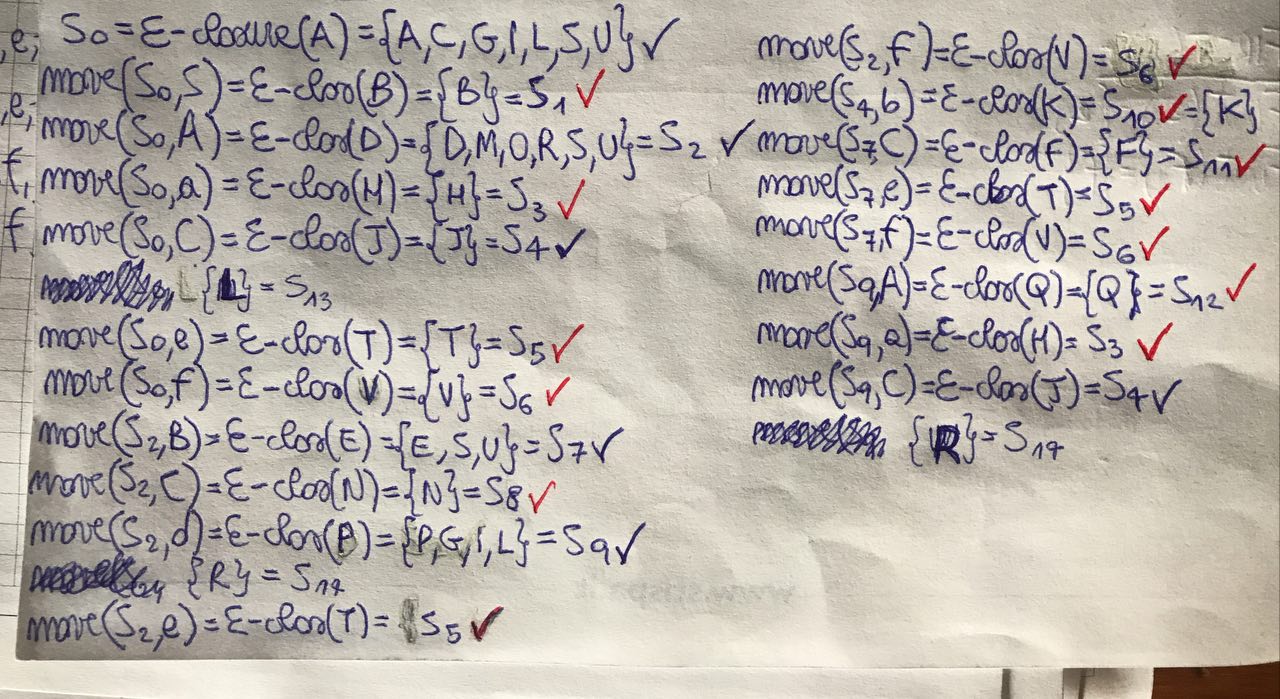 ,e;
S0=ε-closure(A)={A,C,G,I,L,S,U}✓
move(S0,S)=ε-clos(B)={B}=S1✓
,e;
move(S0,A)=ε-clos(D)={D,M,O,R,S,U}=S2✓
f,
move(S0,a)=ε-clos(H)={H}=S3✓
f
move(S0,C)=ε-clos(J)={J}=S4✓
{L}=S13
move(S0,e)=ε-clos(T)={T}=S5✓
move(S0,f)=ε-clos(V)={V}=S6✓
move(S2,B)=ε-clos(E)={E,S,U}=S7✓
move(S2,C)=ε-clos(N)={N}=S8✓
move(S2,d)=ε-clos(P)={P,G,I,L}=S9✓
{R}=S14
move(S2,e)=ε-clos(T)=S5✓
move(S2,f)=ε-clos(V)=S6✓
move(S4,b)=ε-clos(K)=S10✓={K}
move(S7,C)=ε-clos(F)={F}=S11✓
move(S7,e)=ε-clos(T)=S5✓
move(S7,f)=ε-clos(V)=S6✓
move(S9,A)=ε-clos(Q)={Q}=S12✓
move(S9,a)=ε-clos(H)=S3✓
move(S9,C)=ε-clos(J)=S4✓
{R}=S14